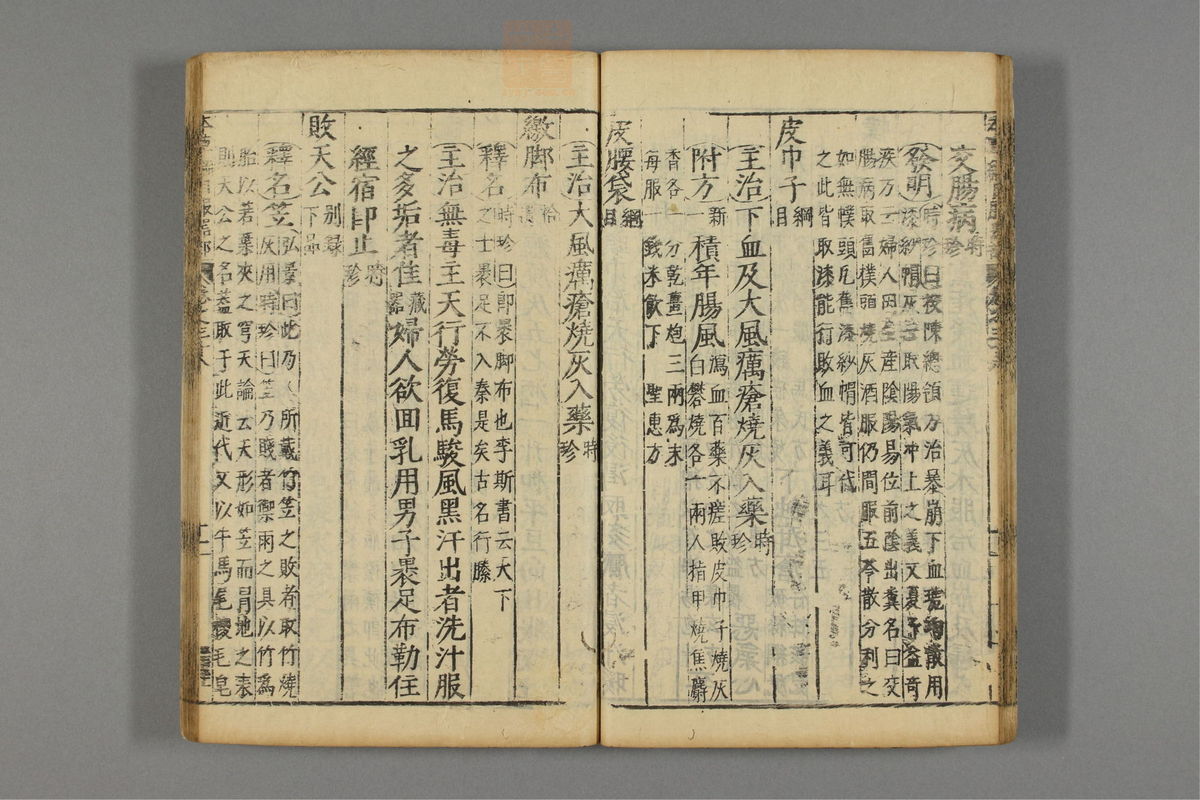 交腸病時珍
發明時珍曰按陳總領方治暴崩下血瓊珀散用
漆紗帽灰云取陽氣冲上之義又夏子益奇
疾方云婦人因生産陰陽易位前陰出糞名曰交
腸病取舊幞頭燒灰酒服仍間服五苓散分利之
如無幞頭凡舊漆紗帽皆可代
之此皆取漆能行敗血之義耳
皮巾子綱目
主治下血及大風癘瘡燒灰入藥時珍
附方新一積年腸風瀉血百藥不瘥敗皮巾子燒灰
白礬燒各一兩人指甲燒焦麝
香各一分乾薑炮三兩爲末
每服一錢米飲下 聖惠方
皮腰袋綱目
主治大風癘瘡燒灰入藥時珍
繳脚布拾遺
釋名時珍曰即裹脚布也李斯書云天下
之士裹足不入秦是矣古名行縢
主治無毒主天行勞復馬駿風黑汗出者洗汁服
之多垢者佳藏器婦人欲回乳用男子裹足布勒住
經宿即止時珍
敗天公别録下品
釋名笠弘景曰此乃人所戴竹笠之敗者取竹燒
灰用時珍曰笠乃賤者禦雨之具以竹為
胎以箬葉夾之穹天論云天形如笠而冒地之表
則天公之名蓋取于此近代又以牛馬尾椶毛皂